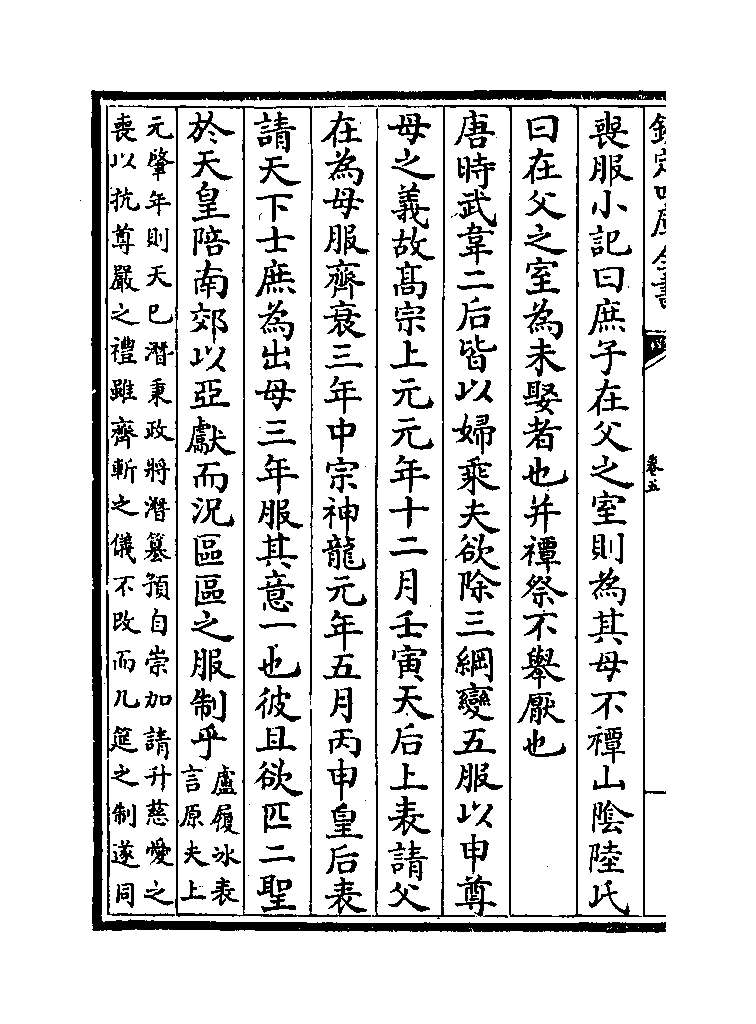 欽定四庫全書
卷五
喪服小記曰庶子在父之室則為其母不禫山陰陸氏
曰在父之室為未娶者也并禫祭不舉厭也
唐時武韋二后皆以婦乘夫欲除三綱變五服以申尊
母之義故髙宗上元元年十二月壬寅天后上表請父
在為母服齊衰三年中宗神龍元年五月丙申皇后表
請天下士庶為出母三年服其意一也彼且欲匹二聖
於天皇陪南郊以亞獻而況區區之服制乎
盧履冰表
言原夫上
元肇年則天已潛秉政將潛簒預自崇加請升慈愛之
喪以抗尊嚴之禮雖齊斬之儀不改而几筵之制遂同